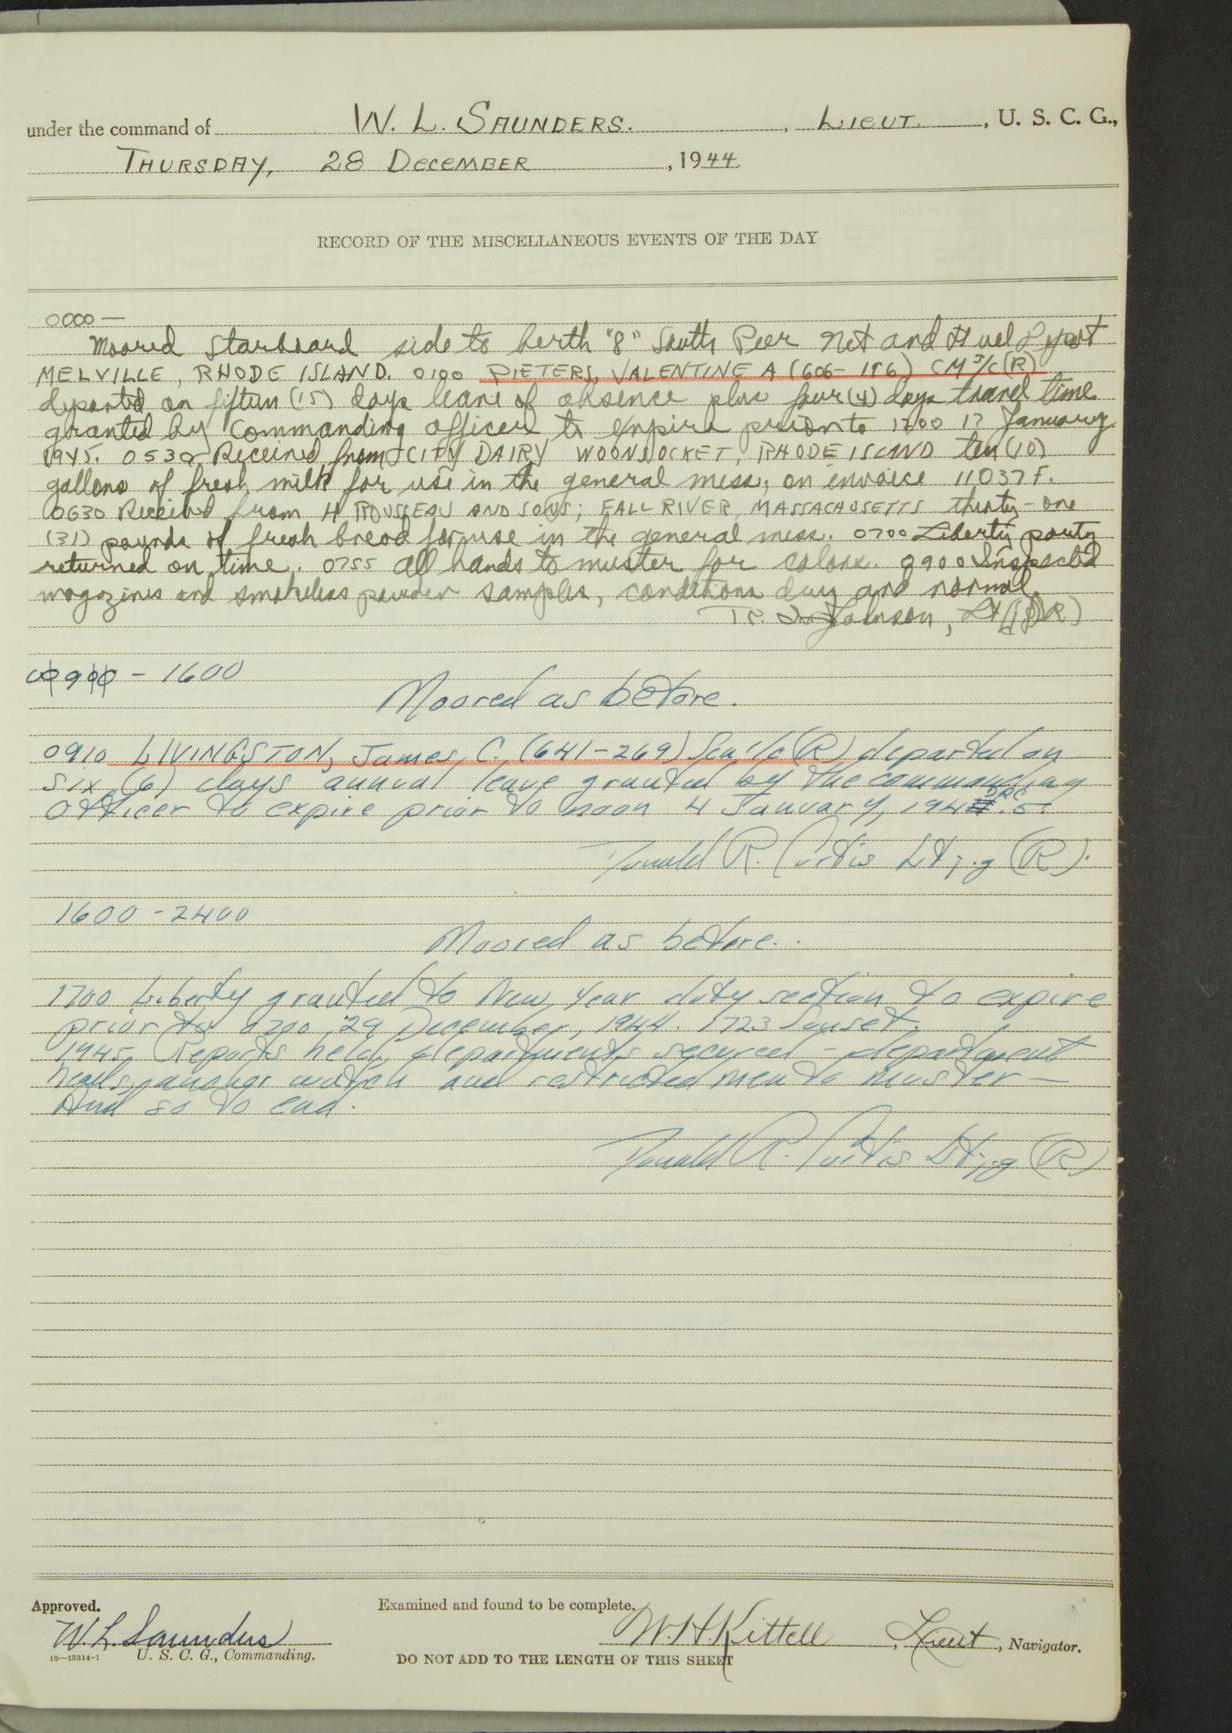 under the command of W. L. SAUNDERS. , LIEUT. , U. S. C. G.,
THURSDAY, 28 DECEMBER , 1944
RECORD OF THE MISCELLANEOUS EVENTS OF THE DAY
0000 —
Moored starboard side to berth "8" South Pier Net and Fuel Depot
MELVILLE, RHODE ISLAND. 0100 PIETERS, VALENTINE A (606-186) CM 3/c (R)
departed on fifteen (15) days leave of absence plus four (4) days travel time
granted by Commanding officer to expire prior to 1700 17 January
1945. 0530 Received from CITY DAIRY WOONSOCKET, RHODE ISLAND ten (10)
gallons of fresh milk for use in the general mess, on invoice 11037F.
0630 Received from H ROUSSEAU AND SONS; FALL RIVER, MASSACHUSETTS thirty-one
(31) pounds of fresh bread for use in the general mess. 0700 Liberty party
returned on time. 0755 All hands to muster for colors. 0900 Inspected
magazines and smokeless powder samples, conditions dry and normal.
Johnson, Lt (jg)(R)
0900 - 1600
Moored as before.
0910 LIVINGSTON, James, C. (641-269) Sea 1/c (R) departed on
six (6) days annual leave granted by the commanding
officer to expire prior to noon 4 January, 1945.
Donald R. Curtis Lt. j.g (R).
1600 - 2400
Moored as before.
1700 Liberty granted to New Year duty section to expire
prior to 0700, 29 December, 1944. 1723 Sunset.
1945 Reports held, departments secured - department
heads, anchor watch and restricted men to muster —
And so to end.
Donald R. Curtis Lt. j.g (R)
Approved.
Examined and found to be complete.
W. L. Saunders
W. H. Kittell , Lieut , Navigator.
16—13314-1 U. S. C. G., Commanding.
DO NOT ADD TO THE LENGTH OF THIS SHEET